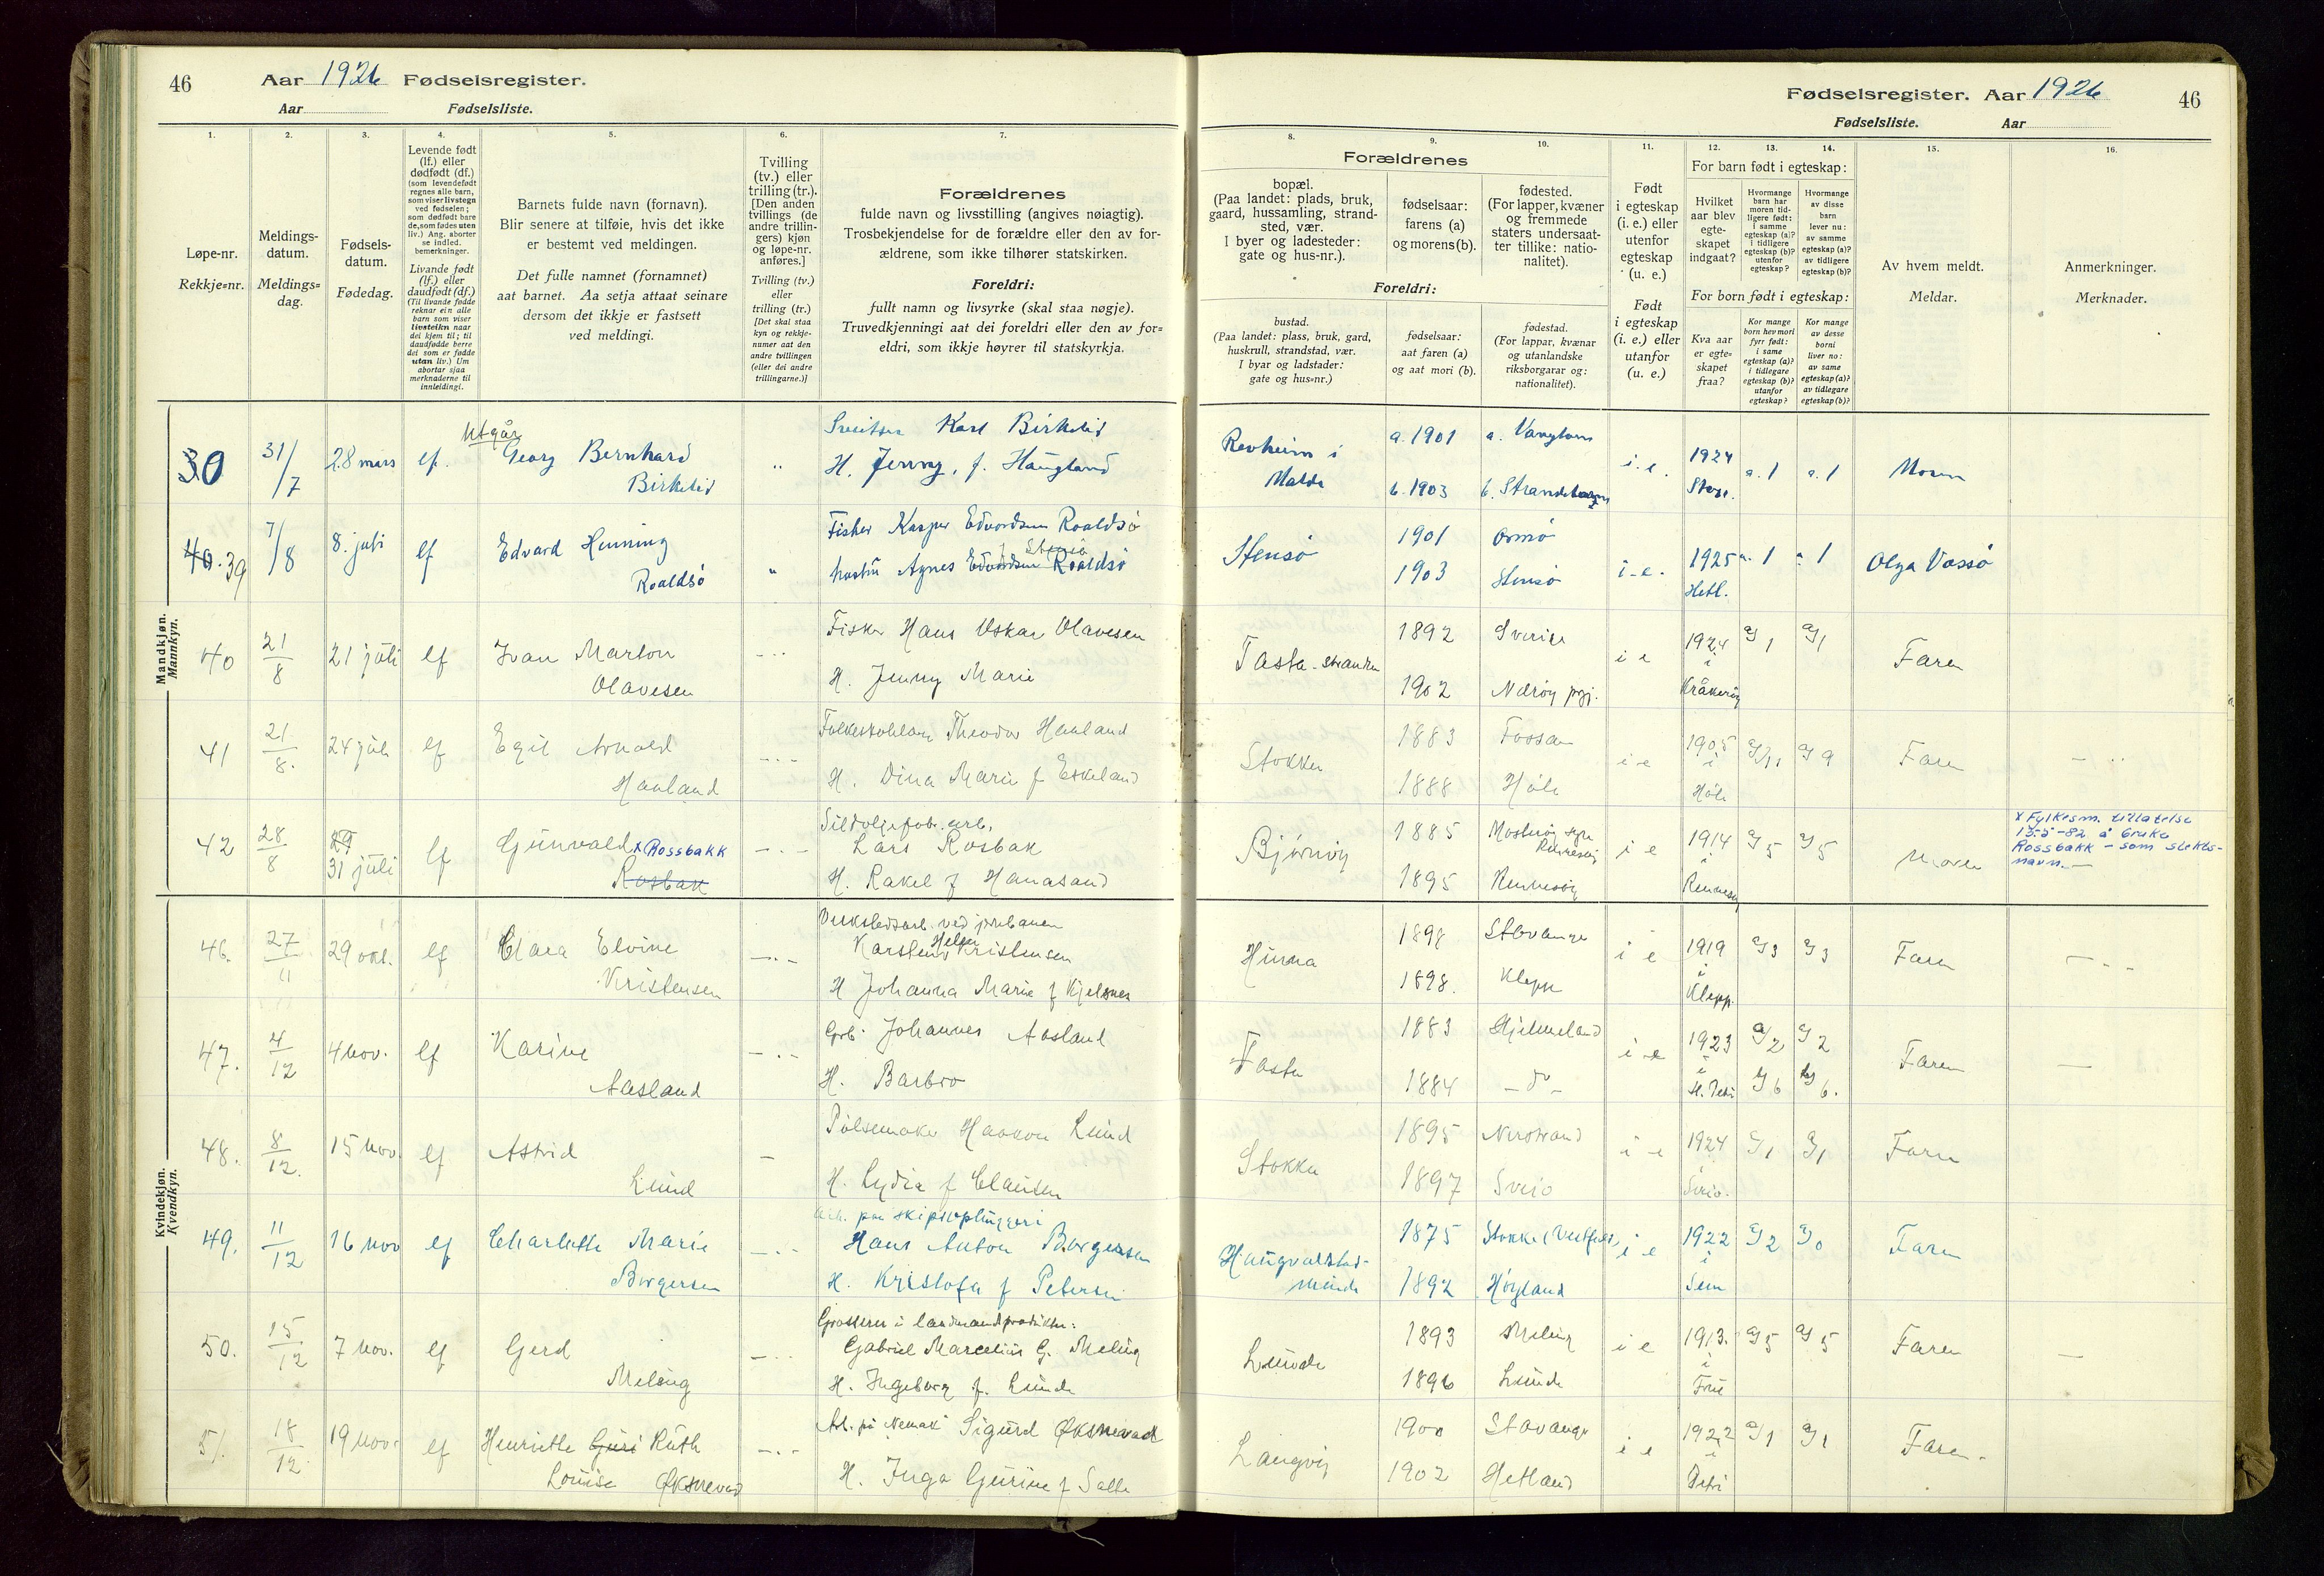 46
Aar 1926 Fødselsregister.
Aar Fødselsliste.
1.
2.
3.
4.
5.
6.
7.
Løpe-nr.
Rekkje=nr.
Meldings-
datum.
Meldings=
dag.
Fødsels-
datum.
Fødedag.
Levende født
(lf.) eller
dødfødt (df.)
(som levendefødt
regnes alle barn,
som viser livstegn
ved fødselen;
som dødfødt bare
de, som fødes uten
liv.) Ang. aborter
se indled.
bemerkninger.
Livande født
(lf.) eller
daudfødt (df.)
(Til livande fødde
reknar ein alle
barn som viser
livsteikn naar
dei kjem til; til
daudfødde berre
dei som er fødde
utan liv.) Um
abortar sjaa
merknaderne til
innleidingi.
Barnets fulde navn (fornavn).
Blir senere at tilføie, hvis det ikke
er bestemt ved meldingen.
Det fulle namnet (fornamnet)
aat barnet. Aa setja attaat seinare
dersom det ikkje er fastsett
ved meldingi.
Tvilling
(tv.) eller
trilling (tr.).
[Den anden
tvillings (de
andre trillin-
gers) kjøn
og løpe-nr.
anføres.]
Tvilling (tv.)
eller
trilling (tr.)
[Det skal staa
kyn og rekkje-
numer aat den
andre tvillingen
(eller dei andre
trillingarne.)]
Forældrenes
fulde navn og livsstilling (angives nøiagtig).
Trosbekjendelse for de forældre eller den av for-
ældrene, som ikke tilhører statskirken.
Foreldri:
fullt namn og livsyrke (skal staa nøgje).
Truvedkjenningi aat dei foreldri eller den av for=
eldri, som ikkje høyrer til statskyrkja.
Mandkjøn.
Mannkyn.
30 31/7 28 mars lf. Utgår
Georg Bernhard
Birkelid
Karl Birkelid
H. Jenny, f. Haugland
40. 39 7/8 8. juli lf Edvard Henning
Roaldsø
Fisker Kasper Edvardsen Roaldsø
hustru Agnes Edvardsen Roaldsø f. Stensø
40 21/8 21 juli lf Ivan Marton
Olavesen
Fisker Hans Oskar Olavesen
H. Jenny Marie
41 21/8. 24 juli lf Egil Arnold
Hauland
Theodor Hauland
H. Dina Marie f Eskeland
42 28/8 29 31 juli lf Gunvald x Rossbakk
Rosbak
Sildoljefab. arb.
Lars Rosbak
H. Rakel f Hanasand
Kvindekjøn.
Kvendkyn.
46. 27/11 29 okt. lf Clara Elvine
Kristensen
Verkstedsarb. ved jernbanen
Karsten Helger Kristensen
H Johanna Marie f Kjelsnes
47. 4/12 4 nov. lf Karine
Aasland
Grb. Johannes Aasland
H. Barbro
48. 8/12. 15 nov. lf Astrid
Lund
Pølsemaker Haakon Lund
H. Lydia f Clausen
49. 11/12 16 nov lf Charlotte Marie
Borgersen
Arb. paa skipsophuggeri
Hans Anton Borgersen
H. Kristofa f Petersen
50. 15/12 7 nov. lf Gerd
Meling
Grosserer i landmandsprodukter.
Gabriel Marcelius G. Meling
H. Ingeborg f. Lunde
51. 18/12 19 nov. lf Henriette Guri Ruth
Louise Øksnevad
Arb. på Sigurd Øksnevad
H. Inga Gurine f Salte
Fødselsregister. Aar 1926
46
Fødselsliste. Aar
8.
9.
10.
11.
12.
13.
14.
15.
16.
Forældrenes
bopæl.
(Paa landet: plads, bruk,
gaard, hussamling, strand-
sted, vær.
I byer og ladesteder:
gate og hus-nr.).
fødselsaar:
farens (a)
og morens (b).
fødested.
(For lapper, kvæner
og fremmede
staters undersaat-
ter tillike: natio-
nalitet).
Foreldri:
bustad.
(Paa landet: plass, bruk, gard,
huskrull, strandstad, vær.
I byar og ladstader:
gate og hus=nr.)
fødselsaar:
aat faren (a)
og aat mori (b).
fødestad.
(For lappar, kvænar
og utanlandske
riksborgarar og:
nationalitet).
Født
i egteskap
(i. e.) eller
utenfor
egteskap
(u. e.)
Født
i egteskap
(i. e.) eller
utanfor
(u. e.)
For barn født i egteskap:
Hvilket
aar blev
egte-
skapet
indgaat?
Hvormange
barn har
moren tid-
ligere født:
i samme
egteskap (a)?
i tidligere
egteskap (b)?
utenfor
egteskap?
Hvormange
av disse
barn
lever nu:
av samme
egteskap (a)?
av tidligere
egteskap (b)?
For born født i egteskap:
Kva aar
er egte=
skapet
fraa?
Kor mange
born hev mori
fyrr født:
i same
egteskap (a)?
i tidlegare
egteskap (b)?
utanfor
egteskap?
Kor mange
av desse
borni
liver no:
av same
egteskap (a)?
av tidlegare
egteskap (b)?
Av hvem meldt.
Meldar.
Anmerkninger.
Merknader.
Revheim i
Malde
a. 1901
b. 1903
b. Strandebarm
i. e. 1924
a. 1 a. 1 Moren
Stensø 1901 Ormø
1903 Stensø
i-e. 1925
Hetl.
a. 1 a 1 Olga Vassø
Tasta-stranden 1892 Sverige
1902 Nærøy pgj.
i e 1924
i
Kråkerøy
a/1 a/1 Faren
Stokka 1883 Fossan
1888 Høle
i-e 1905
i
Høle
a/11 a/9 Faren
Bjørnøy 1885 Mosterøy sogn
Rennesøy
1895 Rennesøy
i e 1914
i
Rennesøy
a/5 a/5 Moren
x Fylkesm. tillatelse
15-5-82 å bruke
Rossbakk - som slekts-
navn.-
Hinna 1898 Stavanger
1898. Klepp
i e 1919
i
Klepp.
a/3 a/3 Faren
Tasta 1883 Hjelmeland
1884 - do -
i e 1923
i
St. Petri
a/2 a/2
b/6 b/6.
Faren
Stokka 1895 Nerstrand
1897 Sveio
i e 1924
i
Sveio.
a/1 a/1 Faren
Haugvaldstad-
minde
1875 Stokke (Vestfold)
1892 Høyland
i e 1922
i
Sem
a/2 a/0 Faren
Lunde 1893 Meling
1896 Lunde
i e 1913.
i
Frue
a/5 a/5 Faren
Langvig 1900 Stavanger
1902 Hetland
i e 1922
i
Petri
a/1 a/1 Faren.